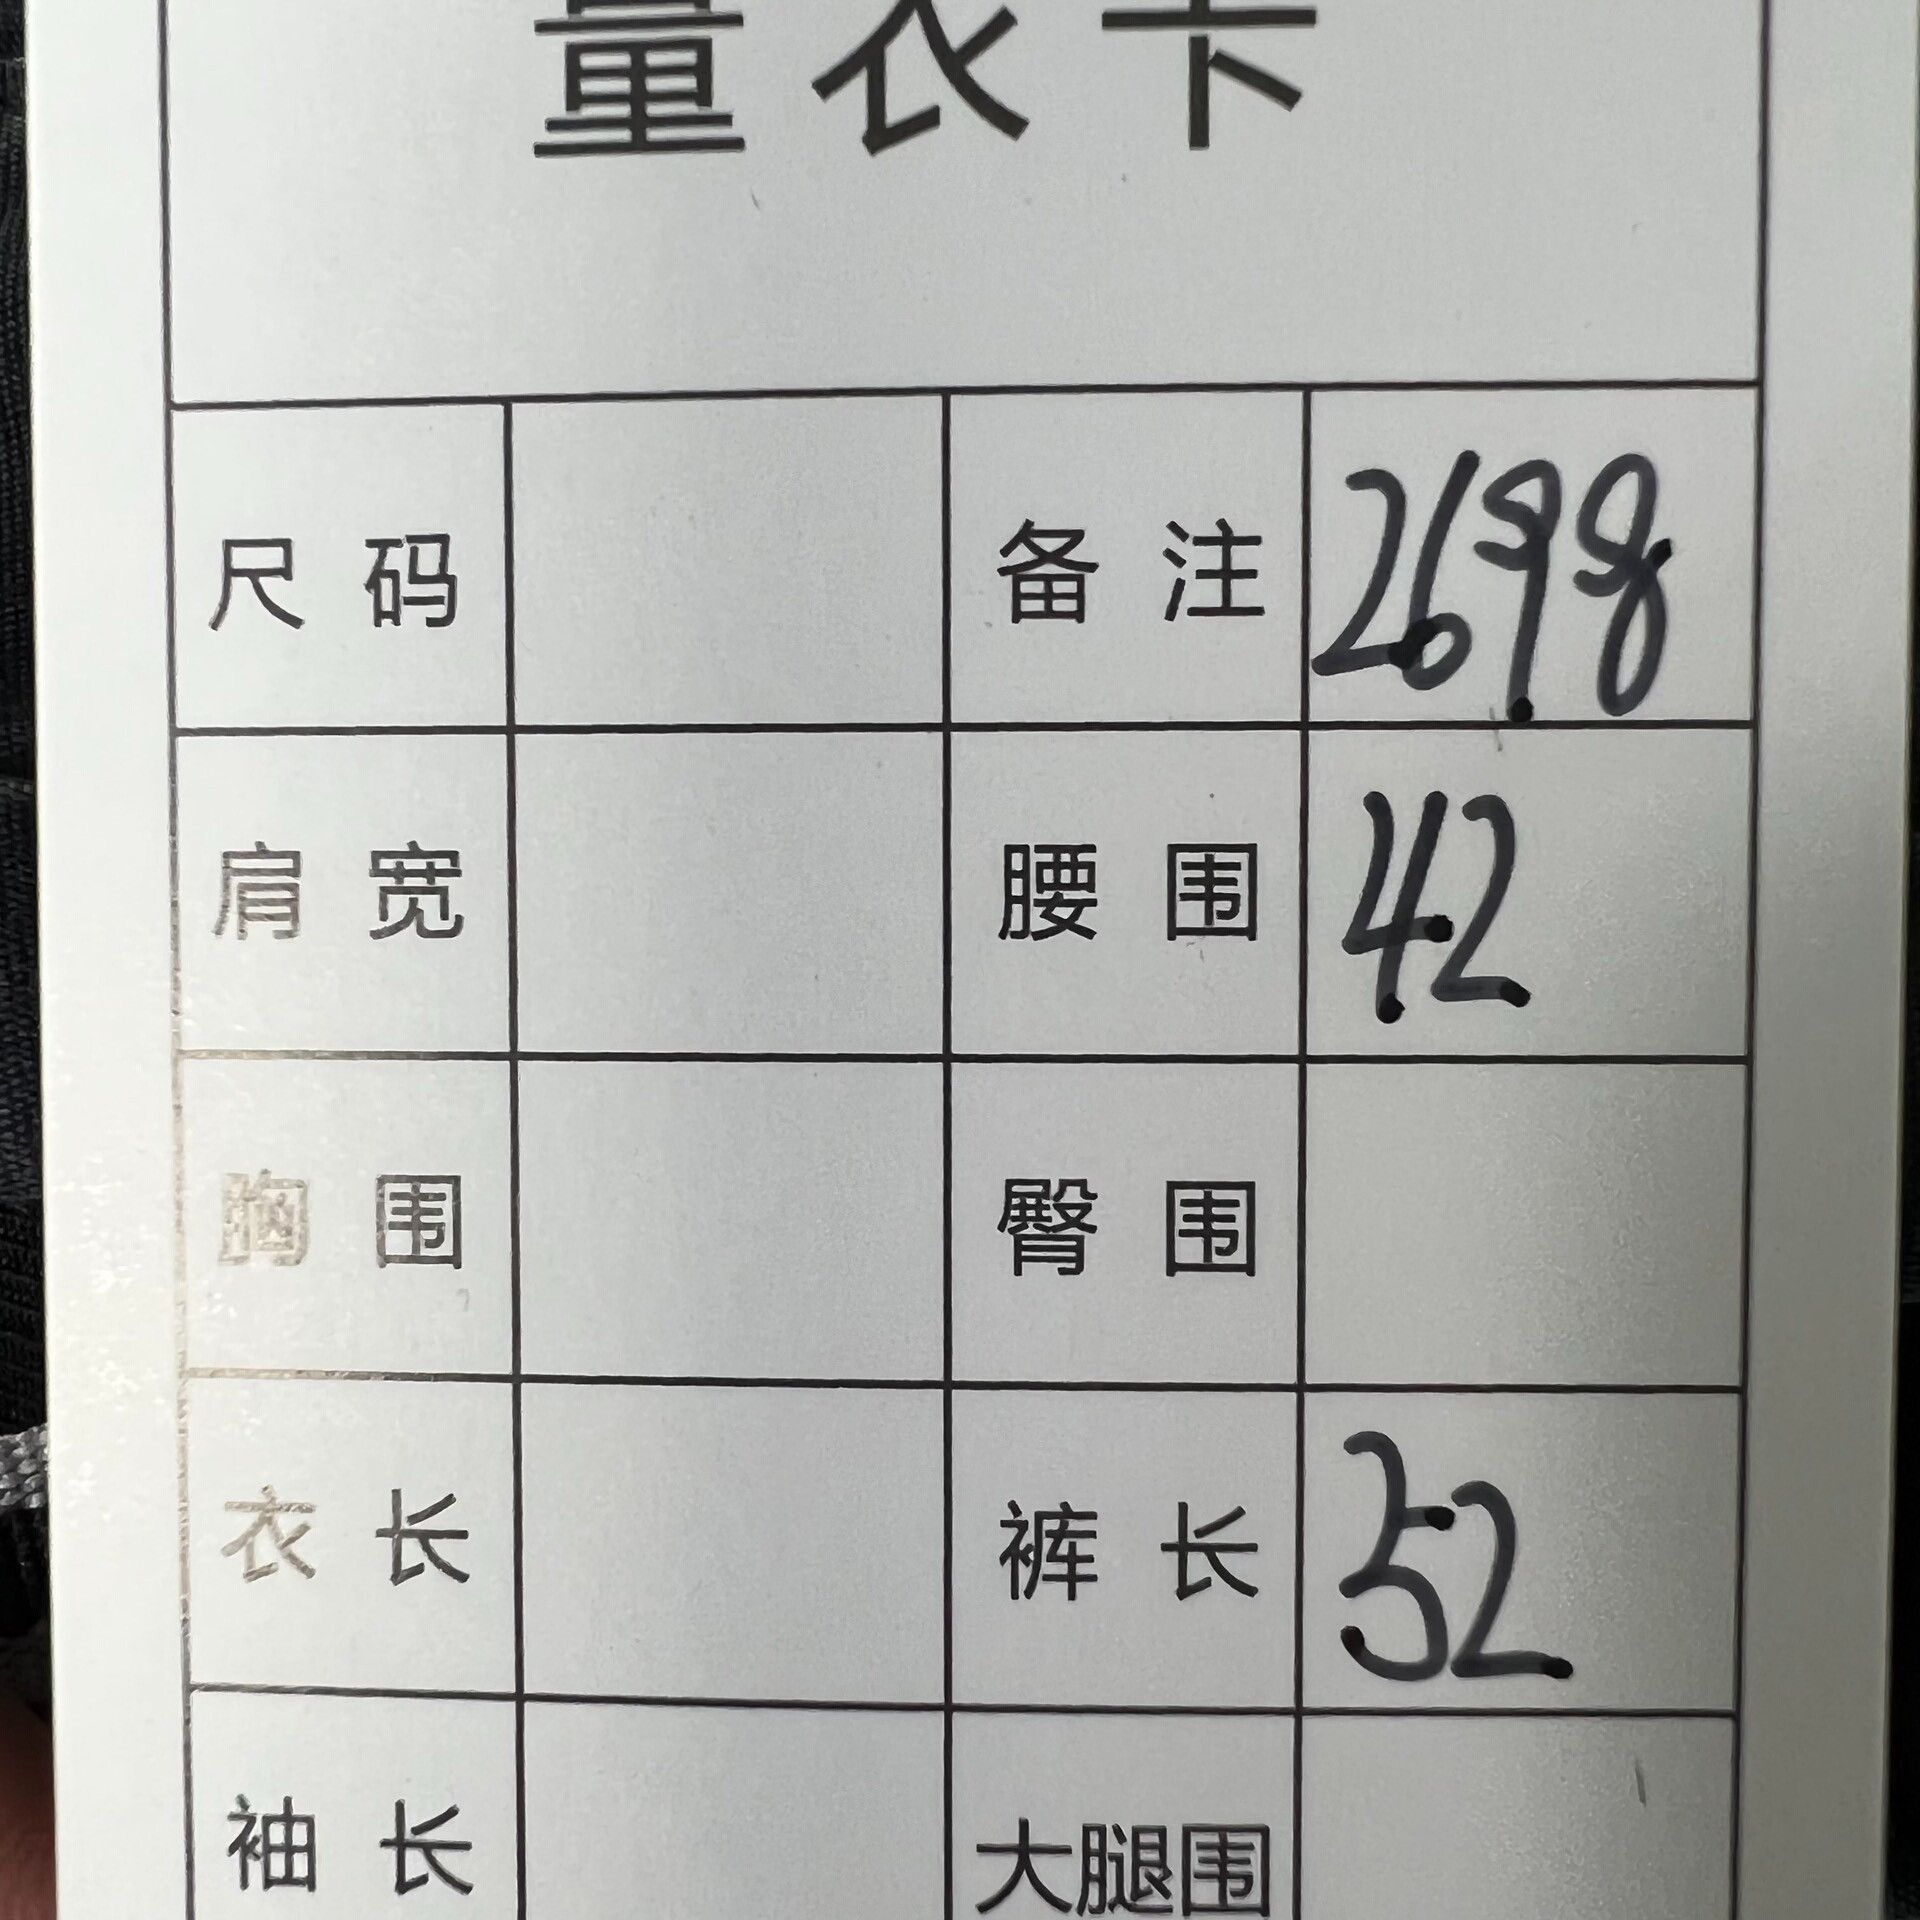 量衣卡
尺码 备注 2698
肩宽 腰围 42
胸围 臀围
衣长 裤长 52
袖长 大腿围